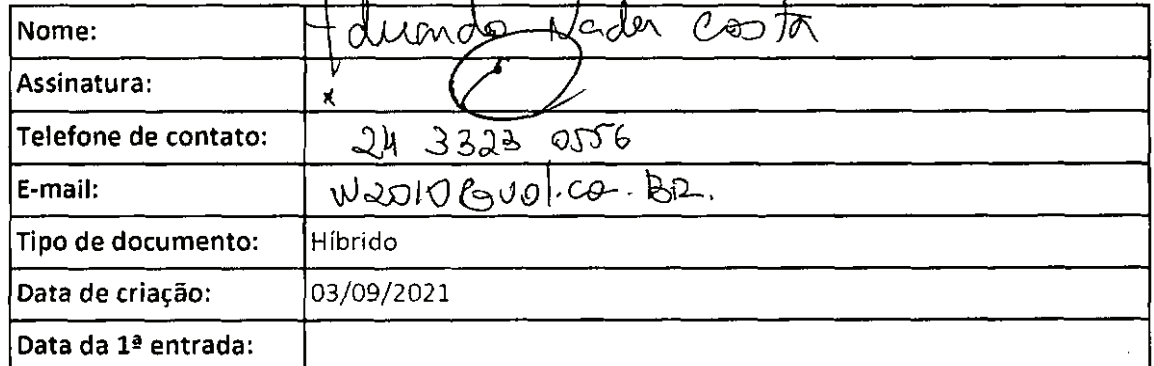 Nome: Eduardo Nader Costa
Assinatura:
Telefone de contato: 24 3323 0556
E-mail:
Tipo de documento: Híbrido
Data de criação: 03/09/2021
Data da 1ª entrada: